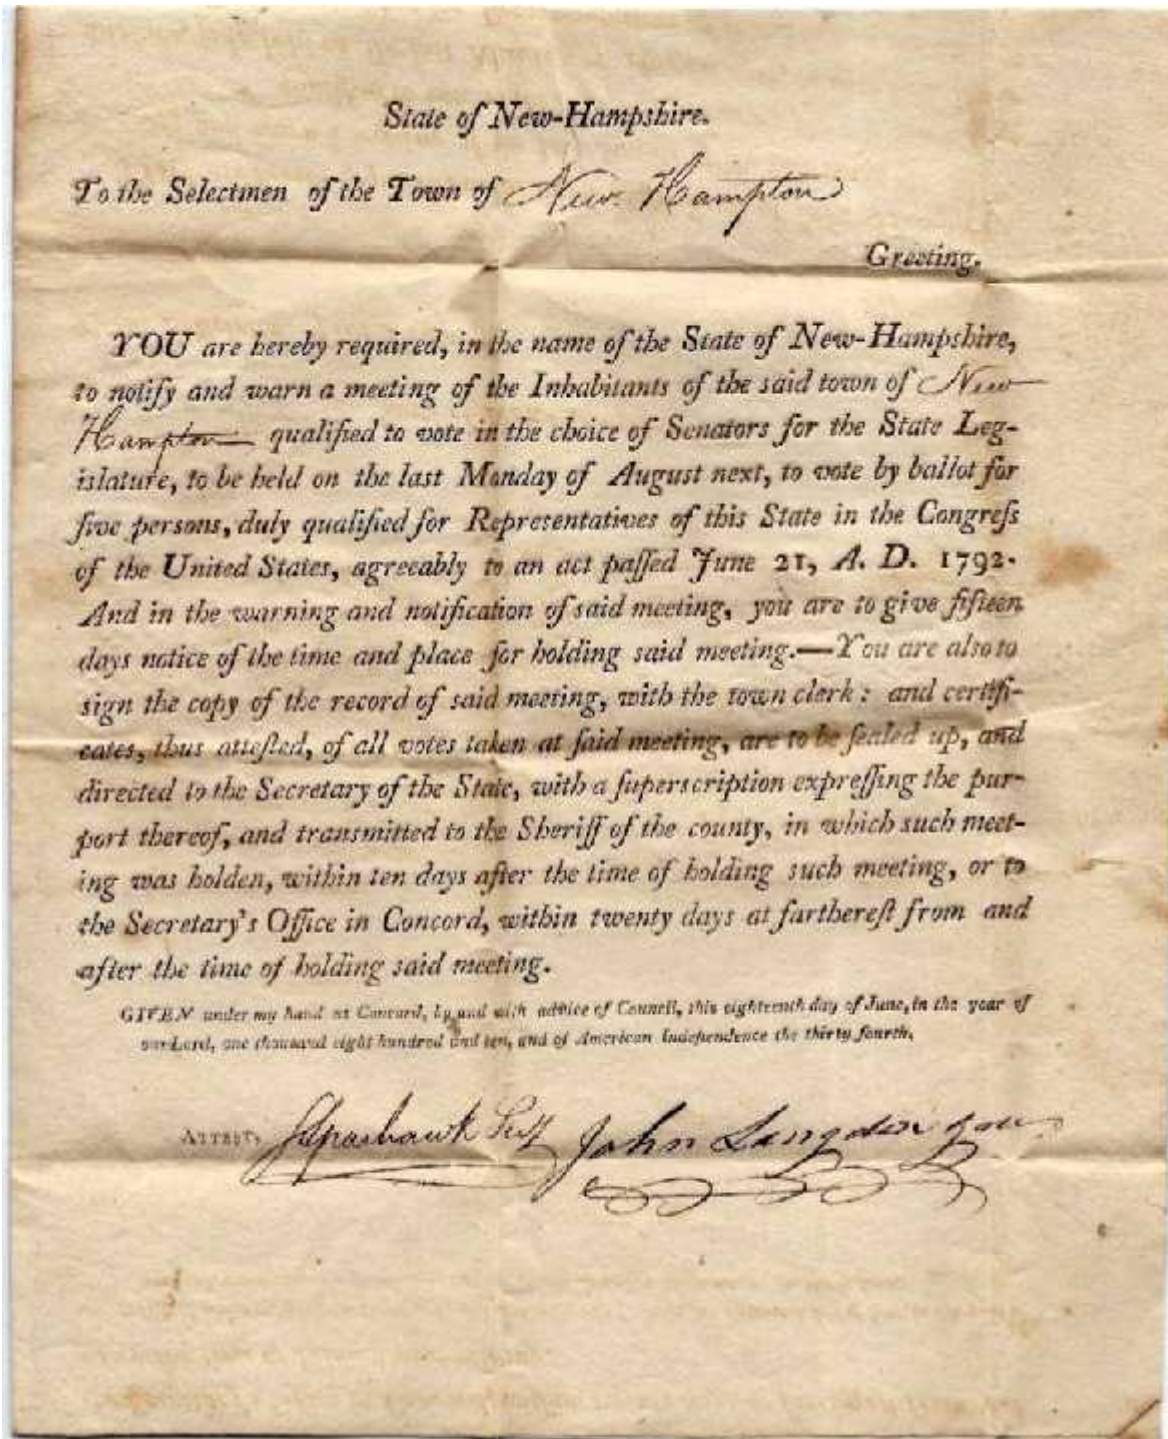 State of New-Hampshire.
To the Selectmen of the Town of New Hampton
Greeting.
YOU are hereby required, in the name of the State of New-Hampshire,
to notify and warn a meeting of the Inhabitants of the said town of New
Hampton qualified to vote in the choice of Senators for the State Leg-
islature, to be held on the last Monday of August next, to vote by ballot for
five persons, duly qualified for Representatives of this State in the Congreſs
of the United States, agreeably to an act paſſed June 21, A. D. 1792.
And in the warning and notification of said meeting, you are to give fifteen
days notice of the time and place for holding said meeting.—You are also to
sign the copy of the record of said meeting, with the town clerk: and certifi-
cates, thus atteſted, of all votes taken at ſaid meeting, are to be ſealed up, and
directed to the Secretary of the State, with a ſuperscription expreſſing the pur-
port thereof, and transmitted to the Sheriff of the county, in which such meet-
ing was holden, within ten days after the time of holding such meeting, or to
the Secretary's Office in Concord, within twenty days at farthereſt from and
after the time of holding said meeting.
GIVEN under my hand at Concord, by and with advice of Council, this eighteenth day of June, in the year of
our Lord, one thousand eight hundred and ten, and of American Independence the thirty fourth.
ATTEST, John Langdon